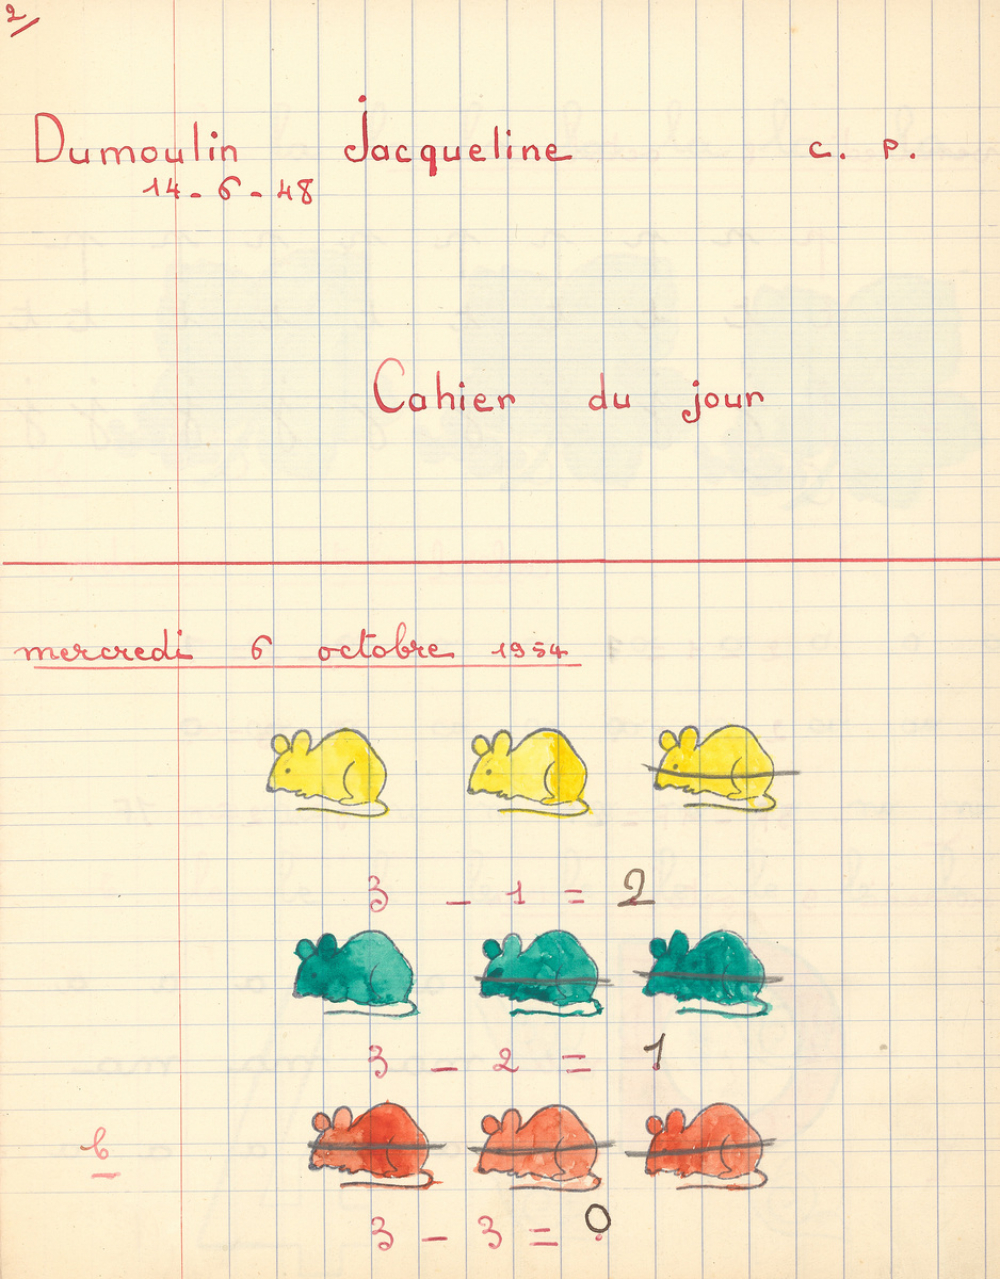 2
Dumoulin Jacqueline c. p.
14-6-48
Cahier du jour
mercredi 6 octobre 1954
3 - 1 = 2
3 - 2 = 1
b
3 - 3 = 0